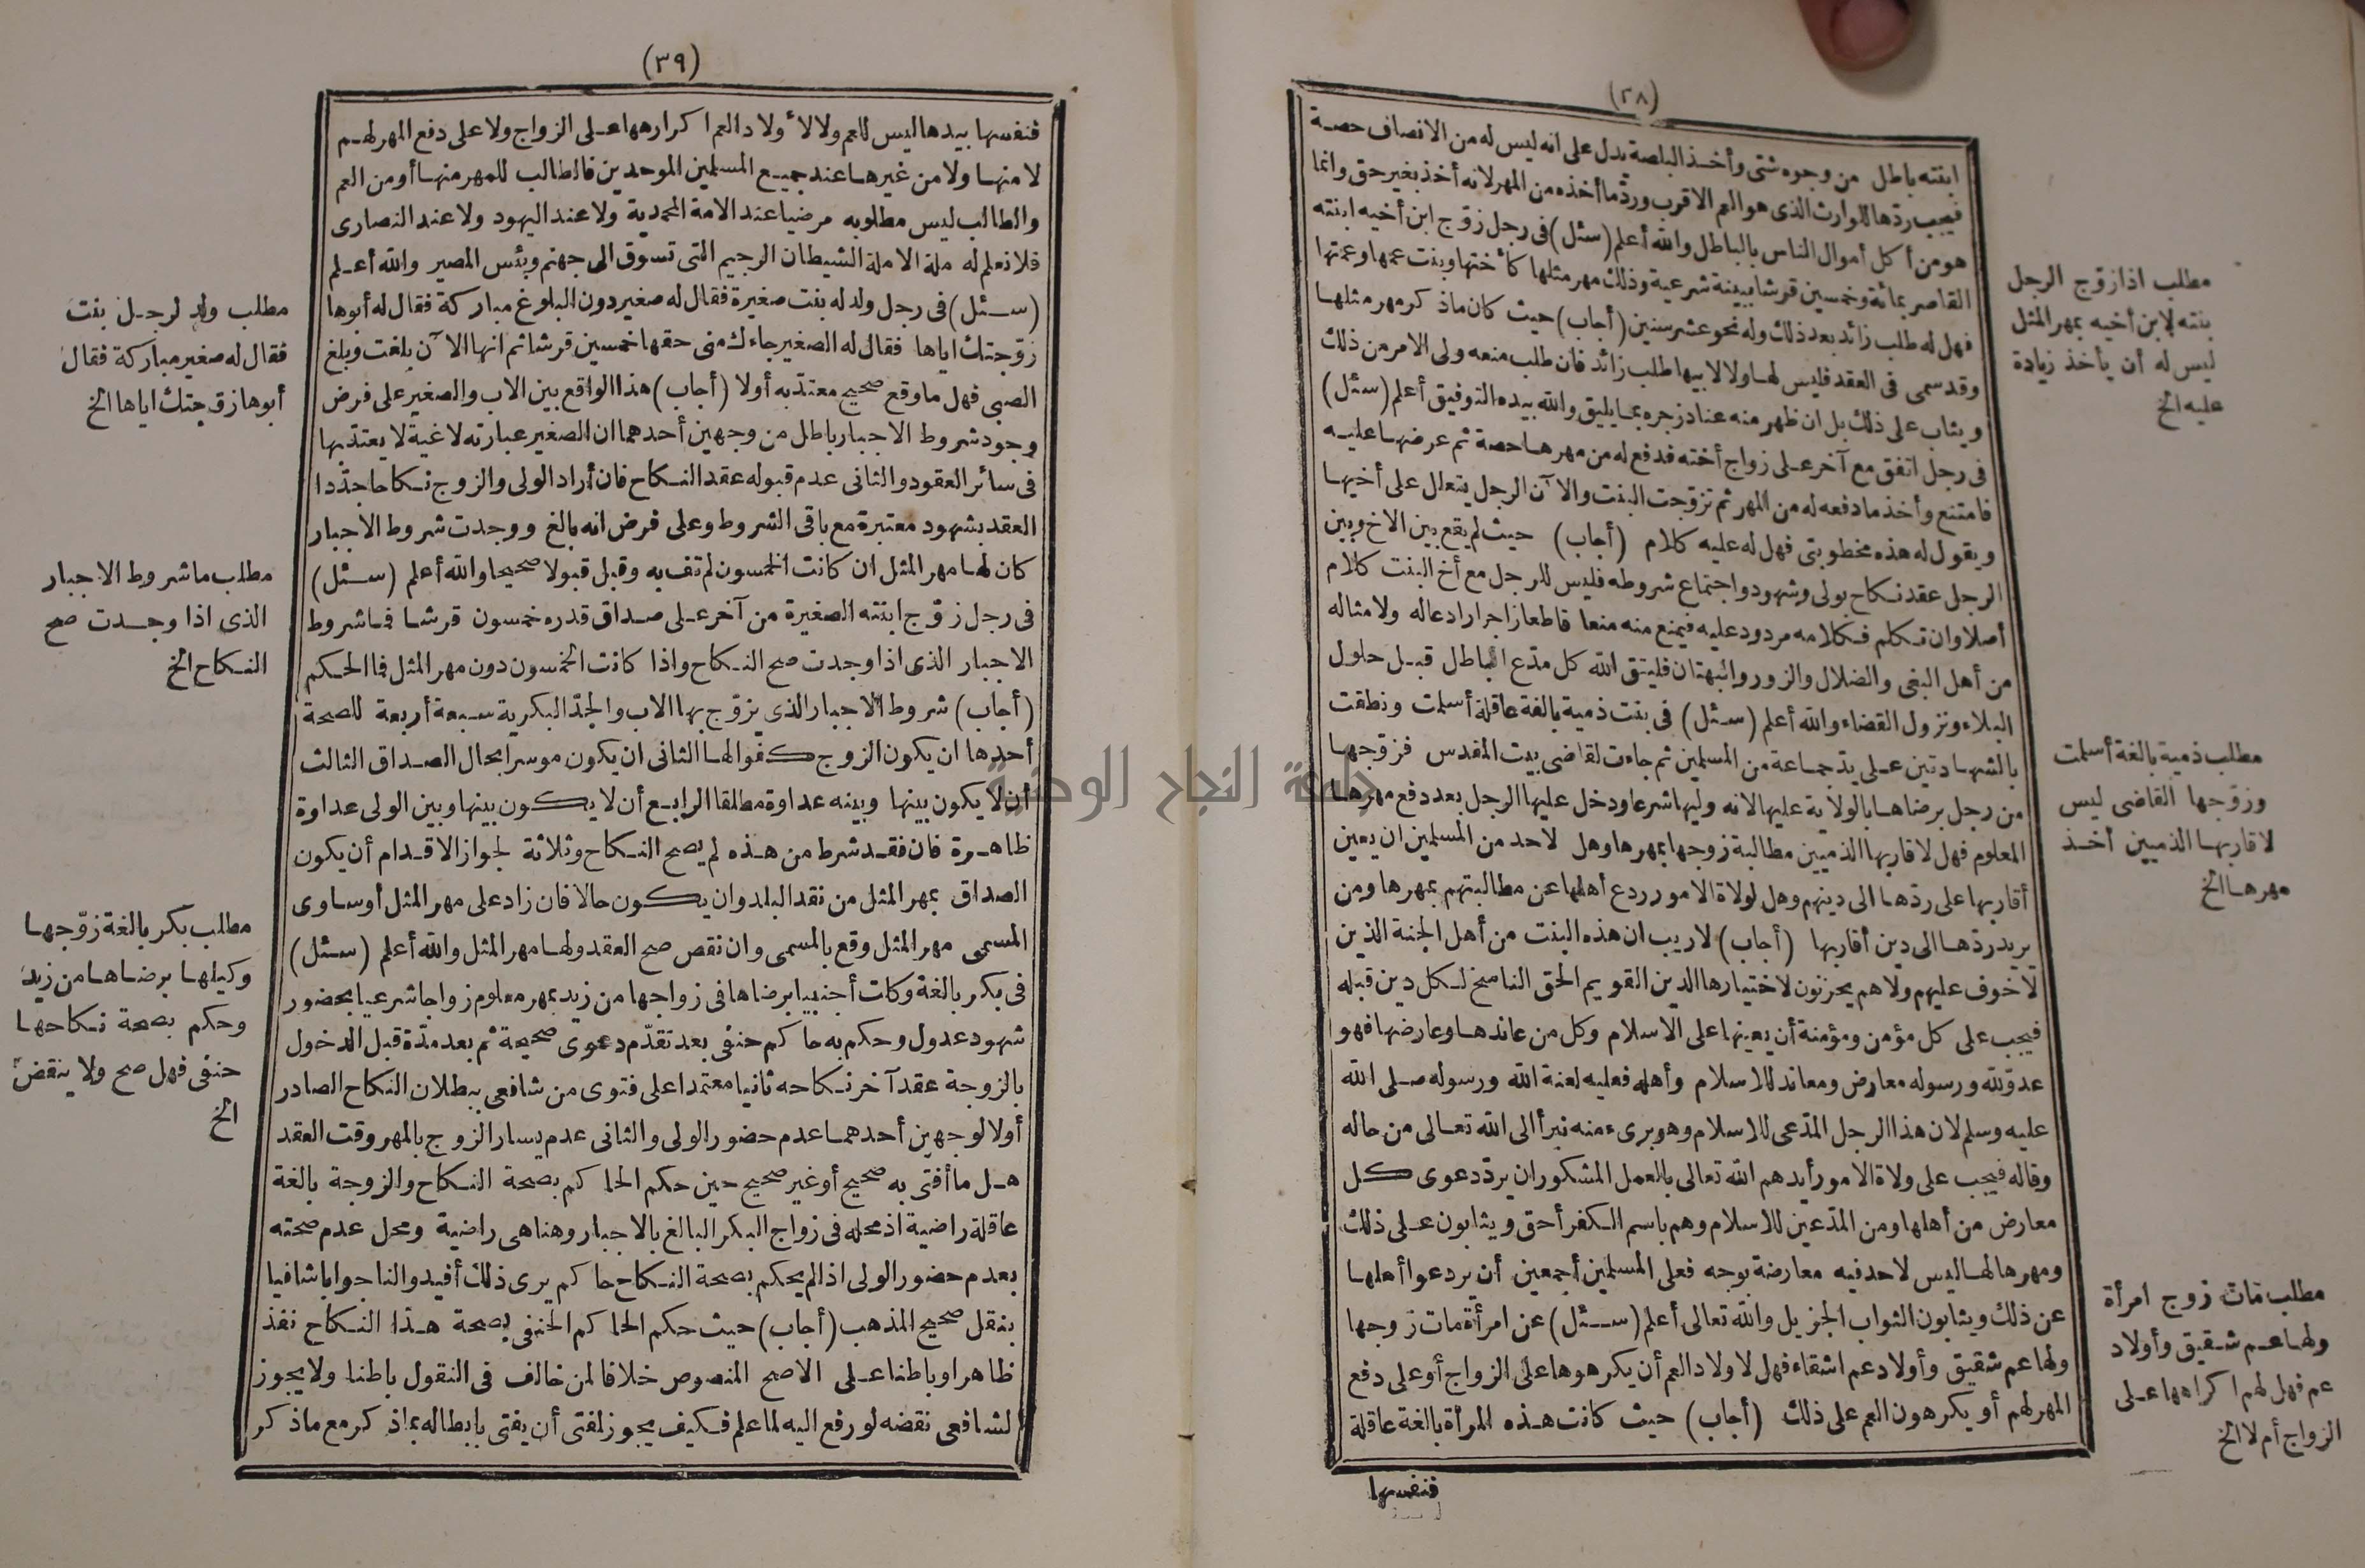 (٣٨)
ابنته باطل من وجوه شتى وأخذ البلصة يدل على انه ليس له من الانصاف حصة
فيجب ردّها للوارث الذى هو العم الاقرب وردّ ما أخذه من المهر لانه أخذ بغير حق وانما
هو من أكل أموال الناس بالباطل والله أعلم (سئل) فى رجل زوّج ابن أخيه ابنته
القاصر بمائة وخمسين قرشا ببينة شرعية وذلك مهر مثلها كأختها وبنت عمها وعمتها
فهل له طلب زائد بعد ذلك وله نحو عشر سنين (أجاب) حيث كان ماذكر مهر مثلها
وقد سمى فى العقد فليس لها ولا لابيها طلب زائد فان طلب منعه ولى الامر من ذلك
ويثاب على ذلك بل ان ظهر منه عناد زجره بما يليق والله بيده التوفيق أعلم (سئل)
فى رجل اتفق مع آخر على زواج أخته فدفع له من مهرها حصة ثم عرضها عليه
فامتنع وأخذ ما دفعه له من المهر ثم تزوّجت البنت والآن الرجل يتعلل على أخيها
ويقول له هذه مخطوبتى فهل له عليه كلام (أجاب) حيث لم يقع بين الاخ وبين
الرجل عقد نكاح بولى وشهود واجتماع شروطه فليس للرجل مع أخ البنت كلام
أصلا وان تكلم فكلامه مردود عليه فيمنع منه منعا قاطعا زاجرا رادعاله ولامثاله
من أهل البغى والضلال والزور والبهتان فليتق الله كل مدّع الباطل قبل حلول
البلاء ونزول القضاء والله أعلم (سئل) فى بنت ذمية بالغة عاقلة أسلمت ونطقت
بالشهادتين على يد جماعة من المسلمين ثم جاءت لقاضى بيت المقدس فزوّجها
من رجل برضاها بالولاية عليها لانه وليها شرعا ودخل عليها الرجل بعد دفع مهرها
المعلوم فهل لاقاربها الذميين مطالبة زوجها بمهرها وهل لاحد من المسلمين ان يعين
أقاربها على ردّها الى دينهم وهل لولاة الامور ردع أهلها عن مطالبتهم بمهرها ومن
يريد ردّها الى دين أقاربها (أجاب) لاريب ان هذه البنت من أهل الجنة الذين
لاخوف عليهم ولاهم يحزنون لاختيارها الدين القويم الحق الناسخ لكل دين قبله
فيجب على كل مؤمن ومؤمنة أن يعينها على الاسلام وكل من عاندها وعارضها فهو
عدوّ لله ورسوله معارض ومعاند للاسلام وأهله فعليه لعنة الله ورسوله صلى الله
عليه وسلم لان هذا الرجل المدّعى للاسلام وهو برىء منه نبرأ الى الله تعالى من حاله
وقاله فيجب على ولاة الامور أيدهم الله تعالى بالعمل المشكور ان يردّ دعوى كل
معارض من أهلها ومن المدّعين للاسلام وهم باسم الكفر أحق ويثابون على ذلك
ومهرها لها ليس لاحد فيه معارضة بوجه فعلى المسلمين أجمعين أن يردعوا أهلها
عن ذلك ويثابون الثواب الجزيل والله تعالى أعلم (سئل) عن امرأة مات زوجها
ولها عم شقيق وأولاد عم اشقاء فهل لاولاد العم أن يكرهوها على الزواج أو على دفع
المهر لهم أو يكرهون العم على ذلك (أجاب) حيث كانت هذه المرأة بالغة عاقلة
فنفسها
مطلب اذا زوّج الرجل
بنته لابن أخيه بمهر المثل
ليس له أن يأخذ زيادة
عليه الخ
مطلب ذمية بالغة أسلمت
وزوّجها القاضى ليس
لاقاربها الذميين أخذ
مهرها الخ
مطلب مات زوج امرأة
ولها عم شقيق وأولاد
عم فهل لهم اكراهها على
الزواج أم لا الخ
(٣٩)
فنفسها بيدها ليس للعم ولا لأولاد العم اكرارهها على الزواج ولا على دفع المهر لهم
لامنها ولامن غيرها عند جميع المسلمين الموحدين فالطالب للمهر منها أو من العم
والطالب ليس مطلوبه مرضيا عند الامة المحمدية ولا عند اليهود ولا عند النصارى
فلانعلم له ملة الاملة الشيطان الرجيم التى تسوق الى جهنم وبئس المصير والله أعلم
(سئل) فى رجل ولد له بنت صغيرة فقال له صغير دون البلوغ مباركة فقال له أبوها
زوّجتك اياها فقال له الصغير جاءك منى حقها خمسين قرشا ثم انها الآن بلغت وبلغ
الصبى فهل ماوقع صحيح معتدّ به أولا (أجاب) هذا الواقع بين الاب والصغير على فرض
وجود شروط الاجبار باطل من وجهين أحدهما ان الصغير عبارته لاغية لا يعتدّ بها
فى سائر العقود والثانى عدم قبوله عقد النكاح فان أراد الولى والزوج نكاحا جدّدا
العقد بشهود معتبرة مع باقى الشروط وعلى فرض انه بالغ ووجدت شروط الاجبار
كان لها مهر المثل ان كانت الخمسون لم تف به وقبل قبولا صحيحا والله أعلم (سئل)
فى رجل زوّج ابنته الصغيرة من آخر على صداق قدره خمسون قرشا فماشروط
الاجبار الذى اذا وجدت صح النكاح واذا كانت الخمسون دون مهر المثل فما الحكم
(أجاب) شروط الاجبار الذى يزوّج بها الاب والجدّ البكر ية سبعة أربعة للصحة
أحدها ان يكون الزوج كفوالها الثانى ان يكون موسرا بحال الصداق الثالث
أن لا يكون بينها وبينه عداوة مطلقا الرابع أن لا يكون بينها وبين الولى عداوة
ظاهرة فان فقد شرط من هذه لم يصح النكاح وثلاثة لجواز الاقدام أن يكون
الصداق بمهر المثل من نقد البلد وان يكون حالا فان زاد على مهر المثل أو ساوى
المسمى مهر المثل وقع بالمسمى وان نقص صح العقد ولها مهر المثل والله أعلم (سئل)
فى بكر بالغة وكلت أجنبيا برضاها فى زواجها من زيد بمهر معلوم زواجا شرعيا بحضور
شهود عدول وحكم به حاكم حنفى بعد تقدّم دعوى صحيحة ثم بعد مدّة قبل الدخول
بالزوجة عقد آخر نكاحه ثانيا معتمدا على فتوى من شافعى ببطلان النكاح الصادر
أولا لوجهين أحدهما عدم حضور الولى والثانى عدم يسار الزوج بالمهر وقت العقد
هل ما أفتى به صحيح أو غير صحيح حين حكم الحاكم بصحة النكاح والزوجة بالغة
عاقلة راضية اذ محله فى زواج البكر البالغ بالاجبار وهنا هى راضية ومحل عدم صحته
بعدم حضور الولى اذا لم يحكم بصحة النكاح حاكم يرى ذلك أفيدوا لنا جوابا شافيا
بنقل صحيح المذهب (أجاب) حيث حكم الحاكم الحنفى بصحة هذا النكاح نفذ
ظاهرا وباطنا على الاصح المنصوص خلافا لمن خالف فى النقول باطنا ولا يجوز
لشافعى نقضه لو رفع اليه لما علم فكيف يجوز لمفتى أن يفتى بابطاله بماذكر مع ماذكر
مطلب ولد لرجل بنت
فقال له صغير مباركة فقال
أبوها زوّجتك اياها الخ
مطلب ماشروط الاجبار
الذى اذا وجدت صح
النكاح الخ
مطلب بكر بالغة زوّجها
وكيلها برضاها من زيد
وحكم بصحة نكاحها
حنفى فهل صح ولا ينقض
الخ
جامعة النجاح الوطنية